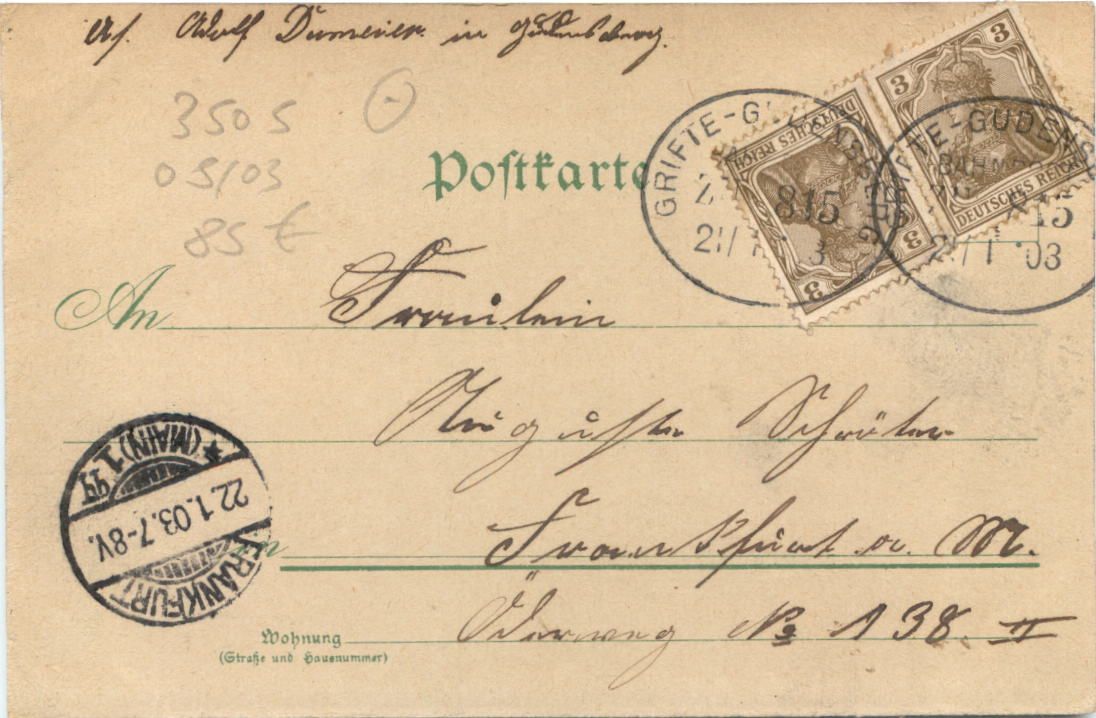 Af. Adolf Dumeier in Gudensberg.
3505
05/03
85 €
Postkarte
GRIFTE-GUDENSBERG
815
21/1 03
GRIFTE-GUDENSB
BAHNPO
815
21/1 03
3
DEUTSCHES REICH
3
3
DEUTSCHES REICH
3
An Fräulein
Auguste Schröter
in Frankfurt a. M.
Öderweg No 138. II
Wohnung
(Straße und Hausnummer)
FRANKFURT
22.1.03.7-8V.
* (MAIN) 1